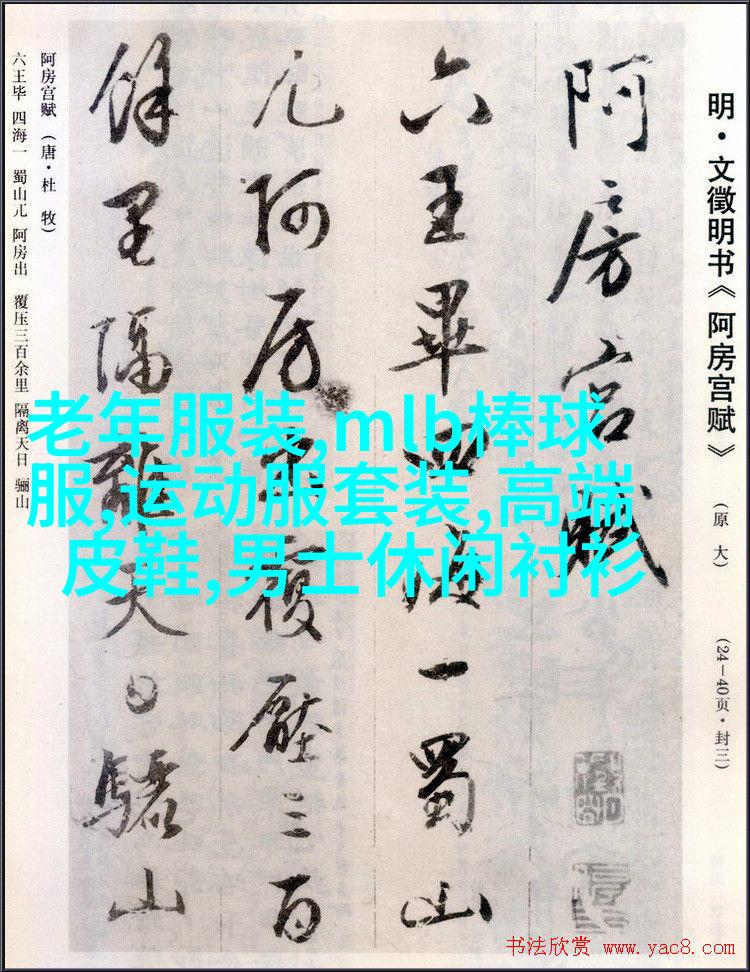 明·文徵明书《阿房宫赋》（原大）（24－40页·封三）
阿房宫赋
六王畢四海一蜀山
兀阿房出覆壓三百
餘里隔離天日驪山
阿房宫赋（唐·杜 牧）
六王毕 四海一 蜀山兀 阿房出 覆压三百余里 隔离天日 骊山
老年服装,mlb棒球
服,运动服套装,高端
皮鞋,男士休闲衬衫
书法欣赏 www.yac8.com